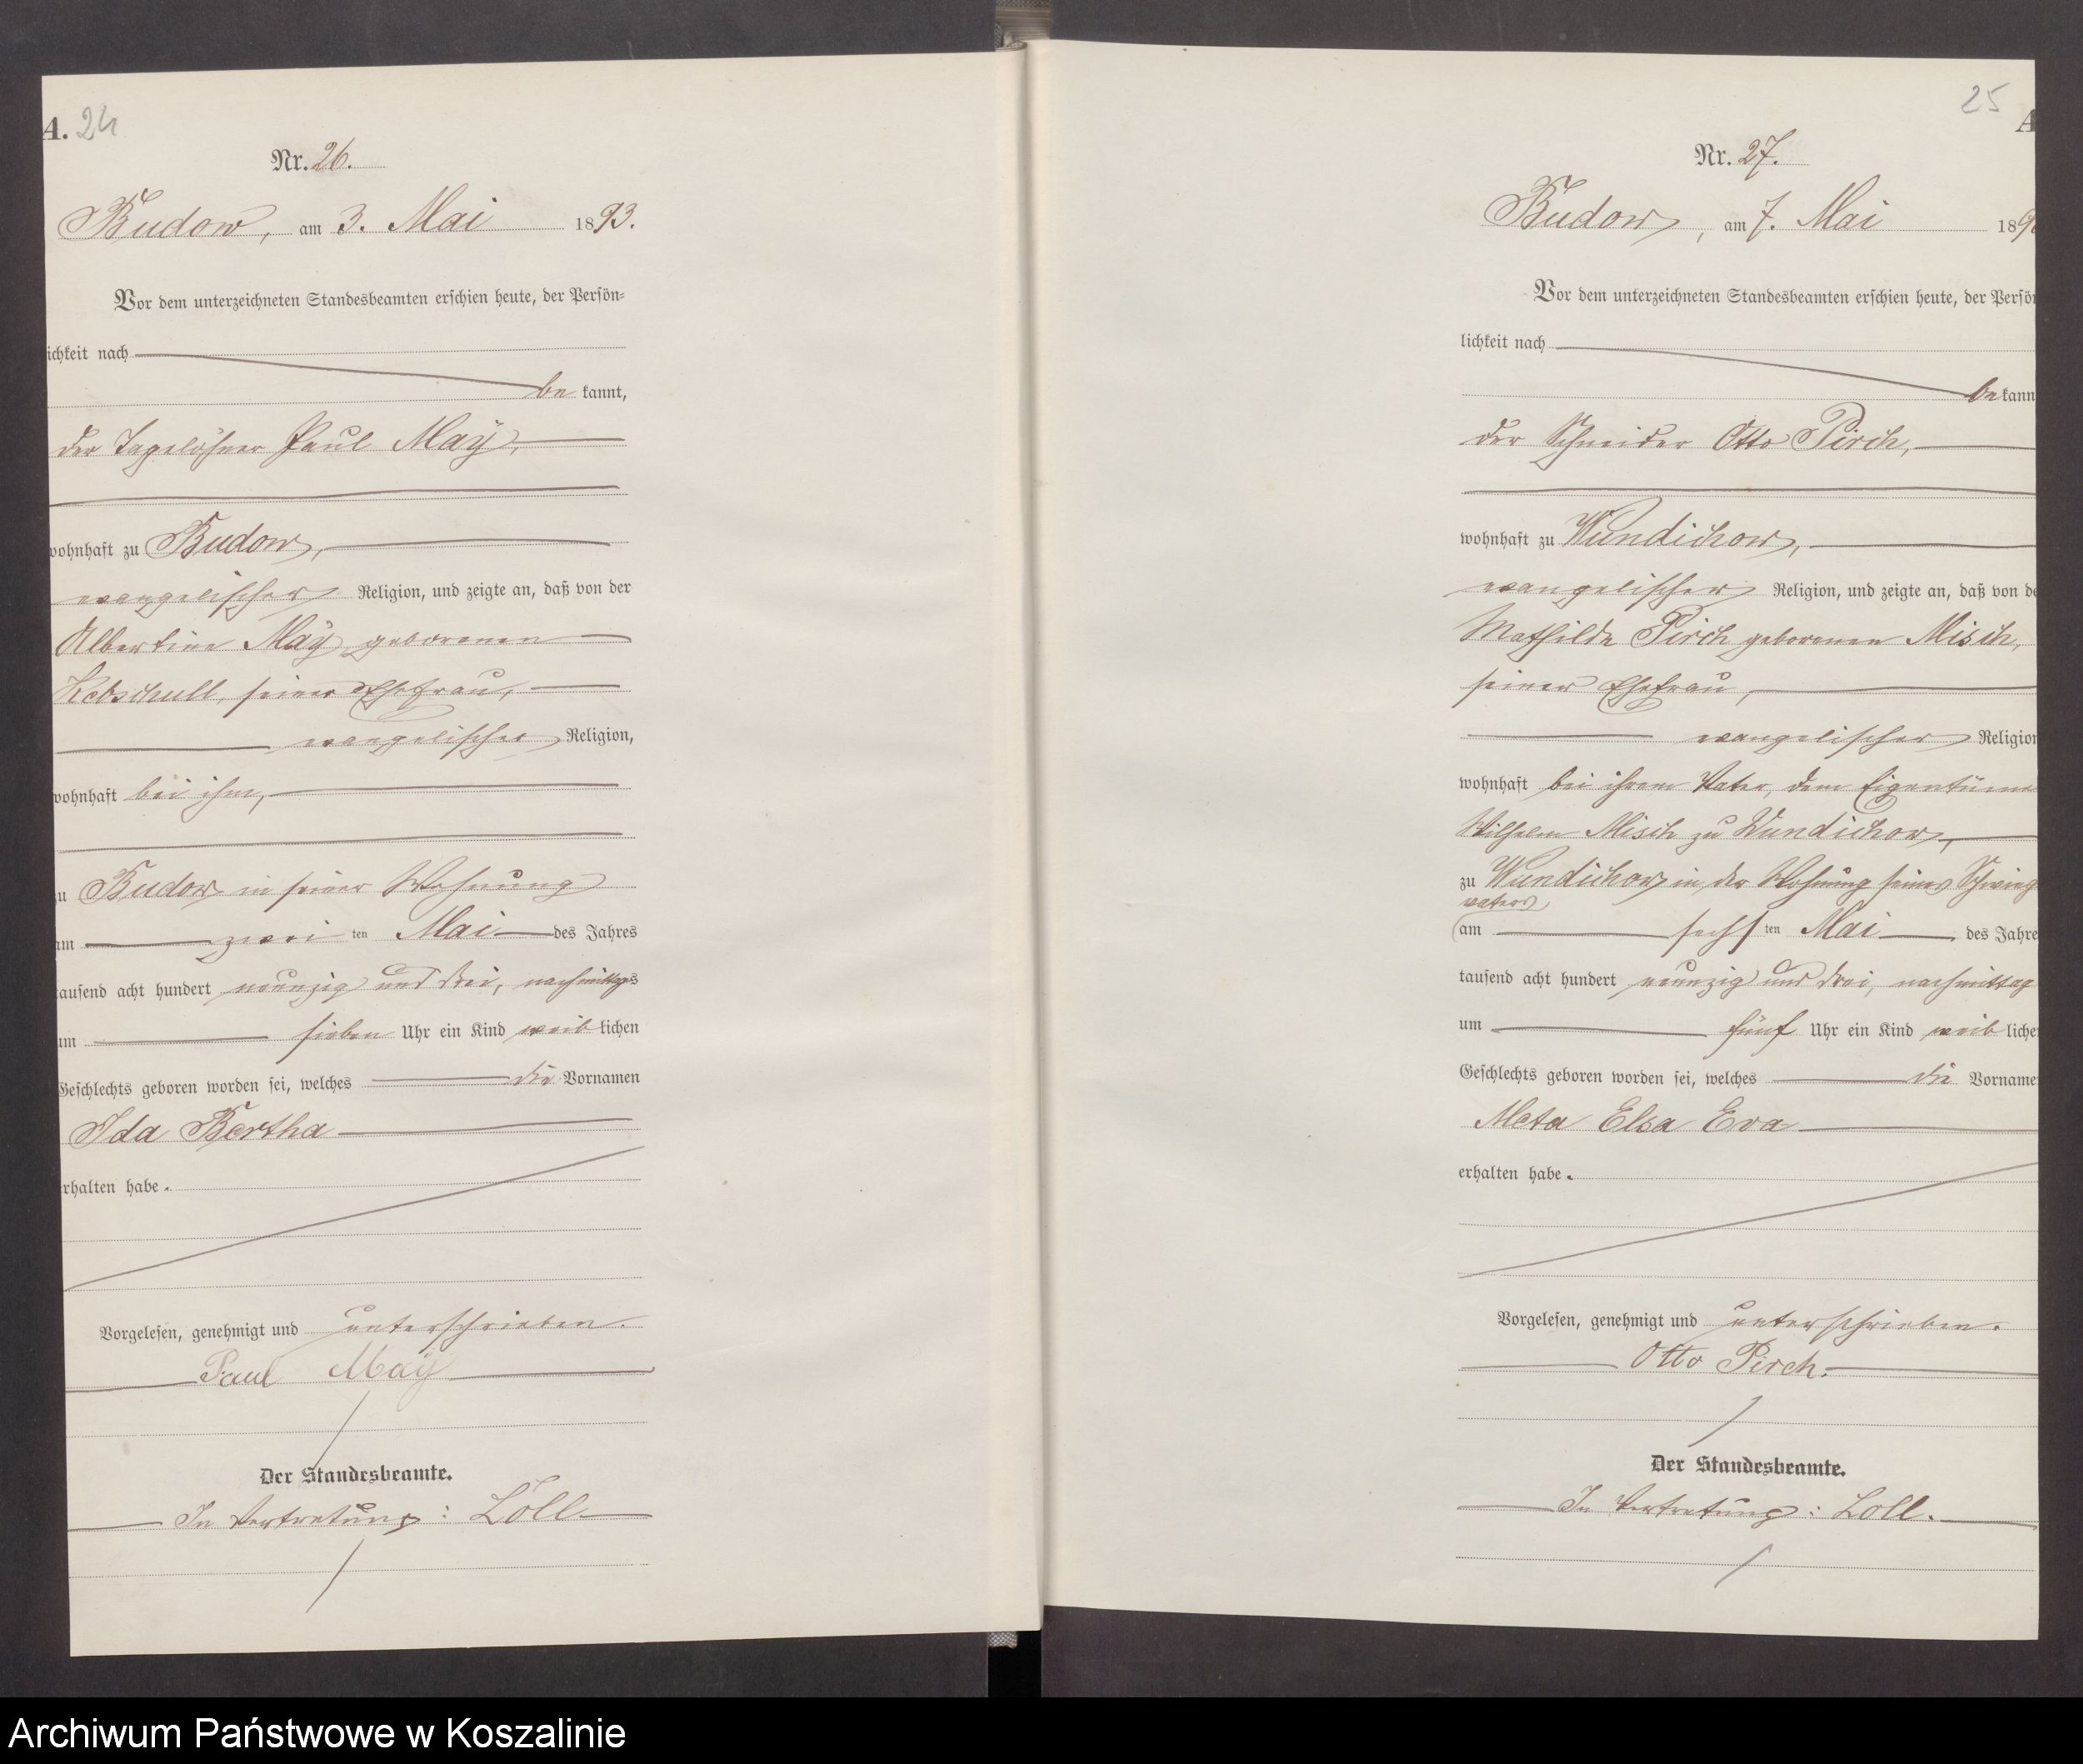 A. 24
Nr. 26.
Budow, am 3. Mai 1893.
Vor dem unterzeichneten Standesbeamten erschien heute, der Persön=
ichkeit nach
be kannt,
der Tagelöhner Paul Maÿ,
wohnhaft zu Budow,
evangelischer Religion, und zeigte an, daß von der
Albertine Maÿ geborenen
Kebschull, seiner Ehefrau,
evangelischer Religion,
wohnhaft bei ihm,
zu Budow in seiner Wohnung
am zwei ten Mai des Jahres
tausend acht hundert neunzig und drei, nachmittags
um sieben Uhr ein Kind weib lichen
Geschlechts geboren worden sei, welches die Vornamen
Ida Bertha
erhalten habe.
Vorgelesen, genehmigt und unterschrieben.
Paul Maÿ
Der Standesbeamte.
In Vertretung: Loll
25 A
Nr. 27.
Budow, am 7. Mai 189
Vor dem unterzeichneten Standesbeamten erschien heute, der Persö
lichkeit nach
be kann
der Schneider Otto Pirch,
wohnhaft zu Wundichow,
evangelischer Religion, und zeigte an, daß von de
Mathilde Pirch geborenen Misch,
seiner Ehefrau,
evangelischer Religion
wohnhaft bei ihrem Vater, dem Eigentüme
Wilhelm Misch zu Wundichow,
zu Wundichow in der Wohnung seines Schwieg
vaters
am sechs ten Mai des Jahre
tausend acht hundert neunzig und drei, nachmittag
um fünf Uhr ein Kind weib liche
Geschlechts geboren worden sei, welches die Vorname
Meta Elsa Eva
erhalten habe.
Vorgelesen, genehmigt und unterschrieben.
Otto Pirch.
Der Standesbeamte.
In Vertretung: Loll.
Archiwum Państwowe w Koszalinie